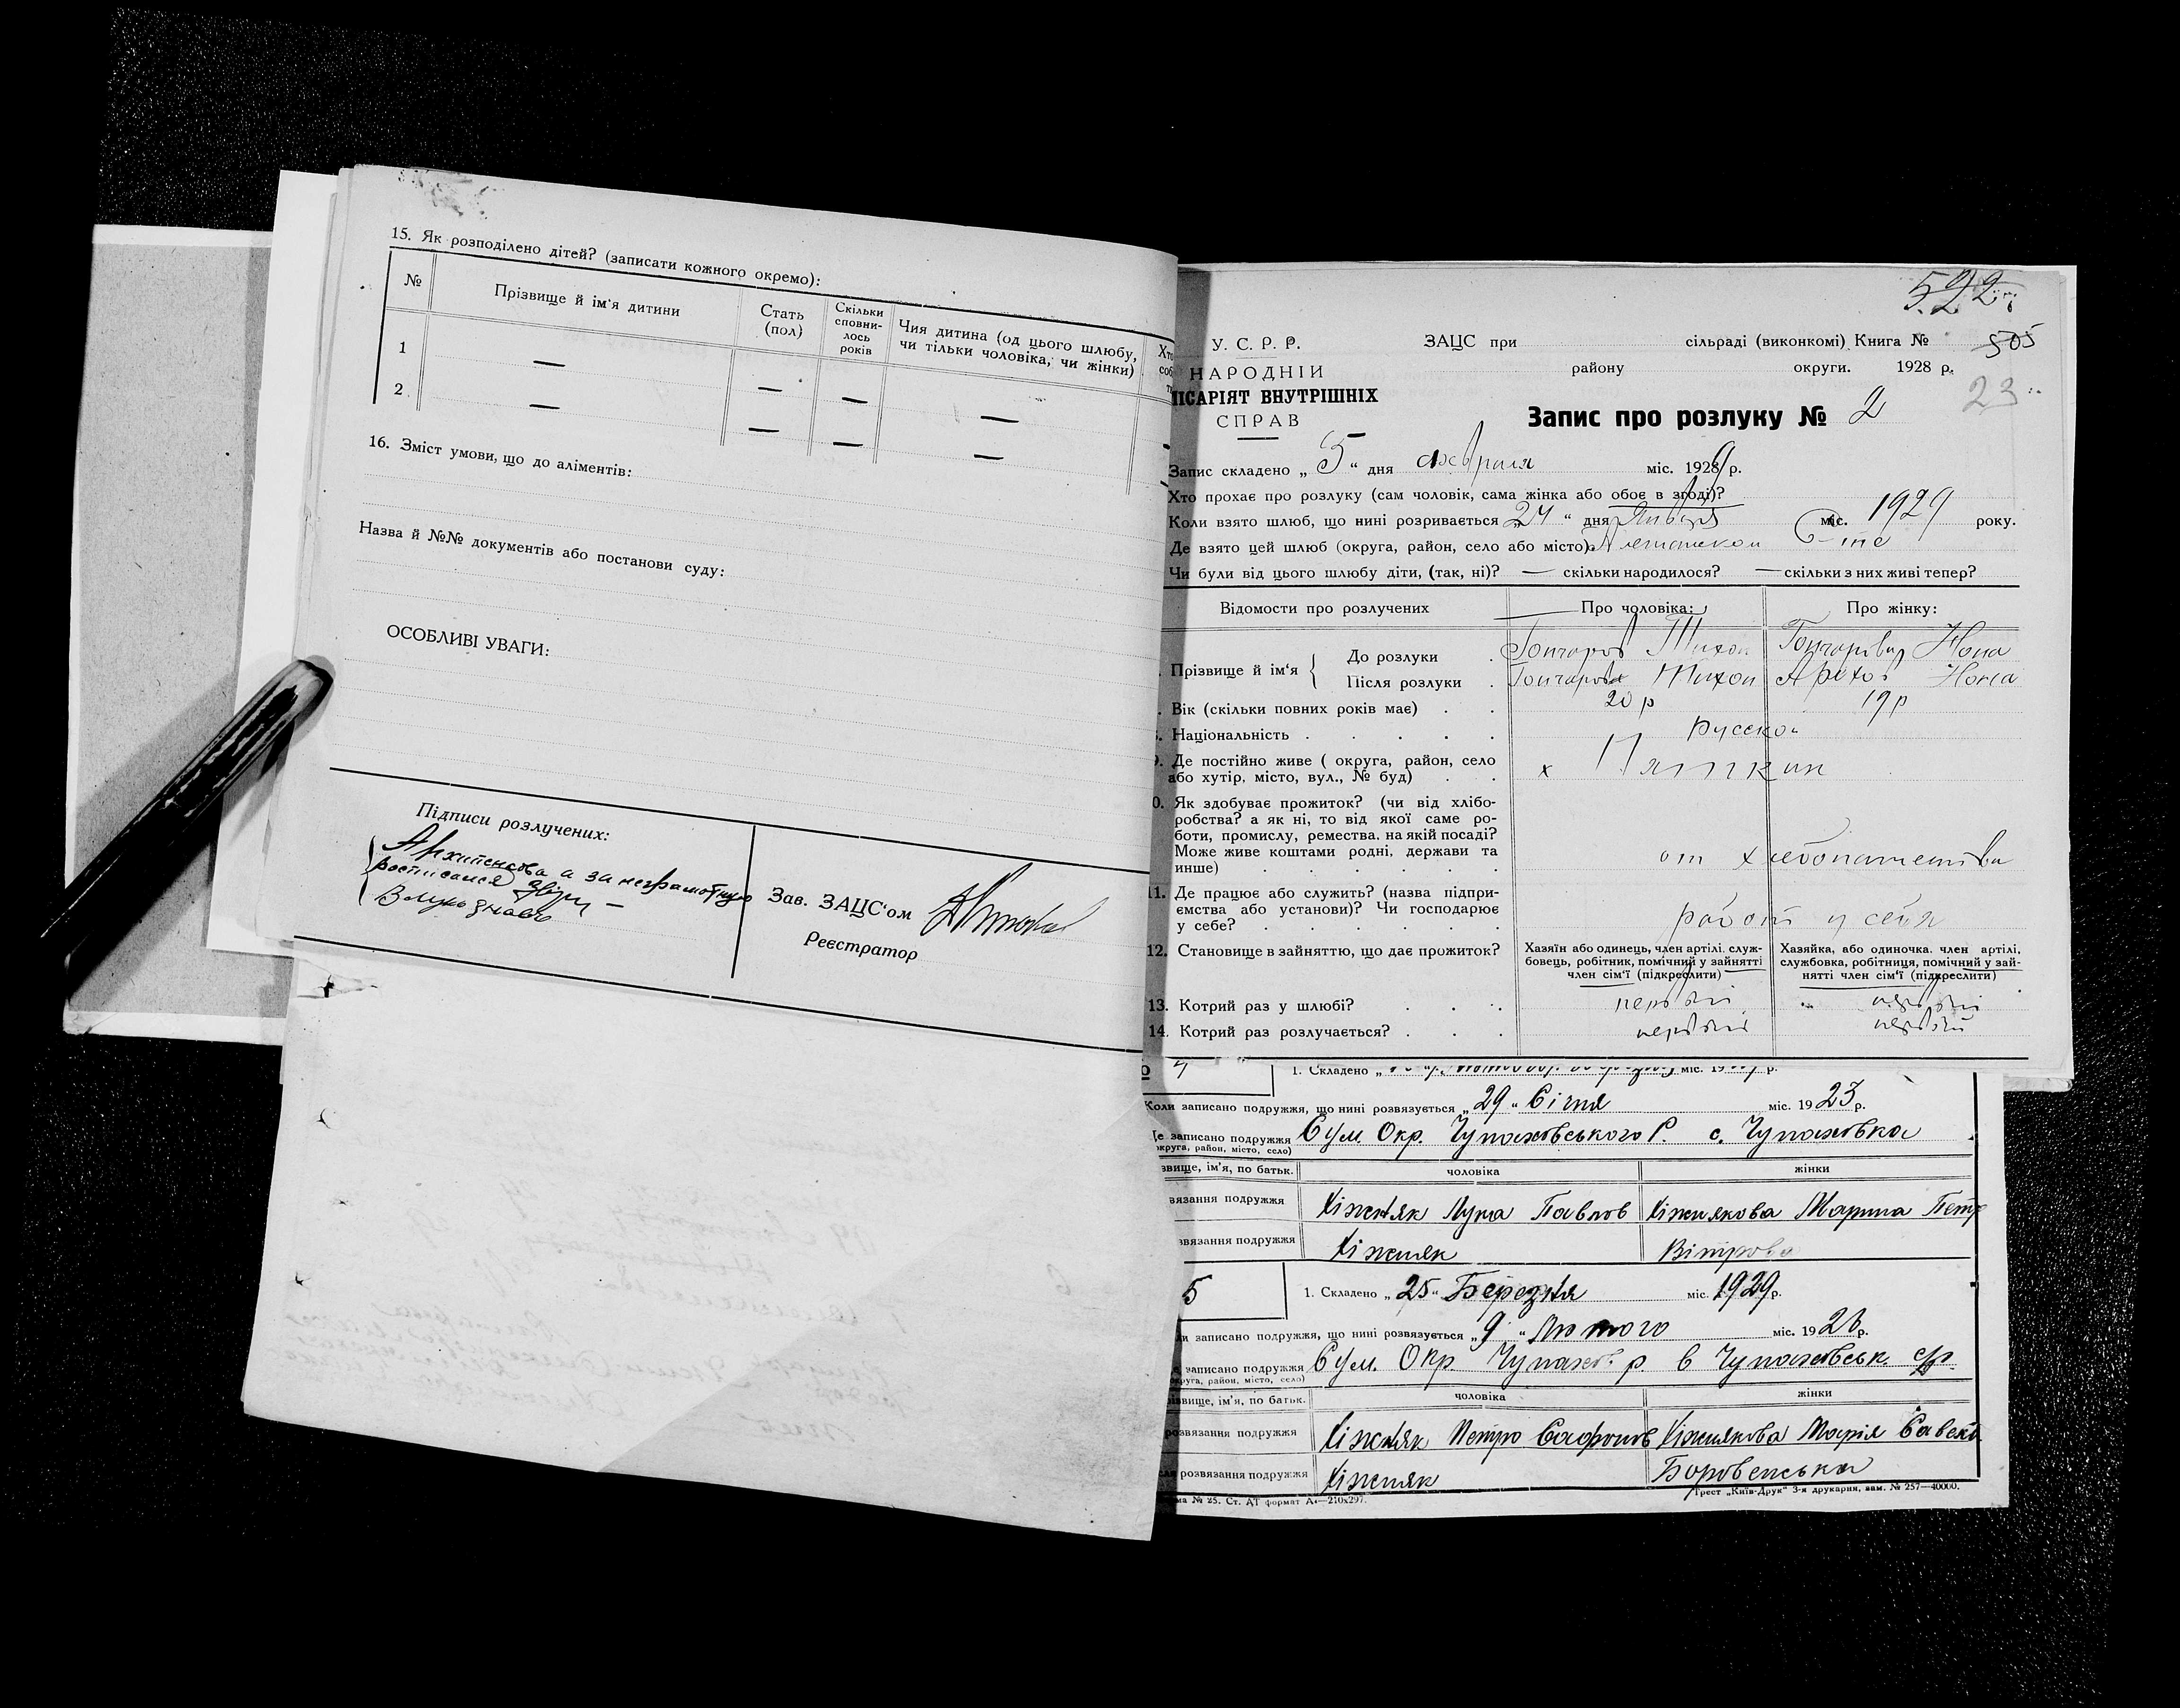 15. Як розподілено дітей? (записати кожного окремо):
№ Прізвище й ім'я дитини Стать (пол) Скільки сповни- лось років Чия дитина (од цього шлюбу, чи тільки чоловіка, чи жінки) Хто
1 — — — —
2 — — — —
16. Зміст умови, що до аліментів:
Назва й №№ документів або постанови суду:
ОСОБЛИВІ УВАГИ:
Підписи розлучених:
а за неграмотную
росписался
Зав. ЗАЦС'ом
Реєстратор
522
У. С. Р. Р. ЗАЦС при сільраді (виконкомі) Книга № 505
НАРОДНІЙ району округи. 1928 р.
ІСАРІЯТ ВНУТРІШНІХ
СПРАВ
23
Запис про розлуку № 2
Запис складено „ 5 “ дня февраля міс. 1929 р.
Хто прохає про розлуку (сам чоловік, сама жінка або обоє в згоді)?
Коли взято шлюб, що нині розривається „24 “ дня Января міс. 1929 року.
Де взято цей шлюб (округа, район, село або місто)
Чи були від цього шлюбу діти, (так, ні)? — скільки народилося? — скільки з них живі тепер?
Відомости про розлучених Про чоловіка: Про жінку:
Прізвище й ім'я { До розлуки Гончаров Тихон Гончарова
Після розлуки Гончаров Тихон
Вік (скільки повних років має) 20 р 19 р
Національність русской
Де постійно живе ( округа, район, село
або хутір, місто, вул., № буд) х
Як здобуває прожиток? (чи від хлібо-
робства? а як ні, то від якої саме ро-
боти, промислу, ремества, на якій посаді?
Може живе коштами родні, держави та
инше) от хлебопашества
11. Де працює або служить? (назва підпри-
ємства або установи)? Чи господарює
у себе? работ у себя
12. Становище в зайняттю, що дає прожиток? Хазяїн або одинець, член артілі, служ- бовець, робітник, помічний у зайнятті член сім'ї (підкреслити) Хазяйка, або одиночка, член артілі, службовка, робітниця, помічний у зай- нятті член сім'ї (підкреслити)
13. Котрий раз у шлюбі? первый первый
14. Котрий раз розлучається? первый первый
1. Складено „ міс. 19 р.
Коли записано подружжя, що нині розвязується „ 29 “ Січня міс. 1923 р.
Де записано подружжя Сум. Окр. Чупахівського Р. с. Чупахівка
округа, район, місто, село)
звище, ім'я, по батьк. чоловіка жінки
вязання подружжя Кіжняк Лука Павлов Кіжнякова Марина Петр
звязання подружжя Кіжняк Вітрова
5 1. Складено „ 25 “ Березня міс. 1929 р.
ли записано подружжя, що нині розвязується „ 9 “ Лютого міс. 1926 р.
записано подружжя Сум. Окр. Чупахів. р. в Чупахівськ. с/р.
округа, район, місто, село)
звище, ім'я, по батьк. чоловіка жінки
розвязання подружжя Кіжняк Петро Сафонов Кіжнякова Марія
розвязання подружжя Кіжняк Боровенська
ма № 25. Ст. АТ формат А₄—210х297. Трест „Київ-Друк“ 3-я друкарня, зам. № 257—40000.